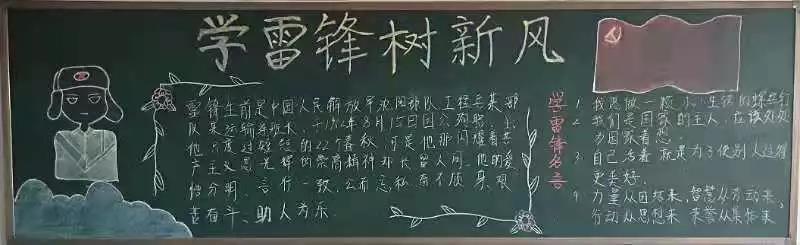 学雷锋树新风
雷锋生前是中国人民解放军沈阳部队工程兵某部
队某运输连班长,于1962年8月15日因公殉职,
他只度过短短的22个春秋,可是他那闪耀着共
产主义思想光辉的崇高精神却长留人间。他的爱
憎分明、言行一致、公而忘私、奋不顾身、艰
苦奋斗、助人为乐。
学雷锋名言
1 我愿做一颗小小生锈的螺丝钉
2 我们是国家的主人,应该处处
为国家着想
3 自己活着就是为了使别人过得
更美好.
4 力量从团结来,智慧从劳动来,
行动从思想来 荣誉从集体来,